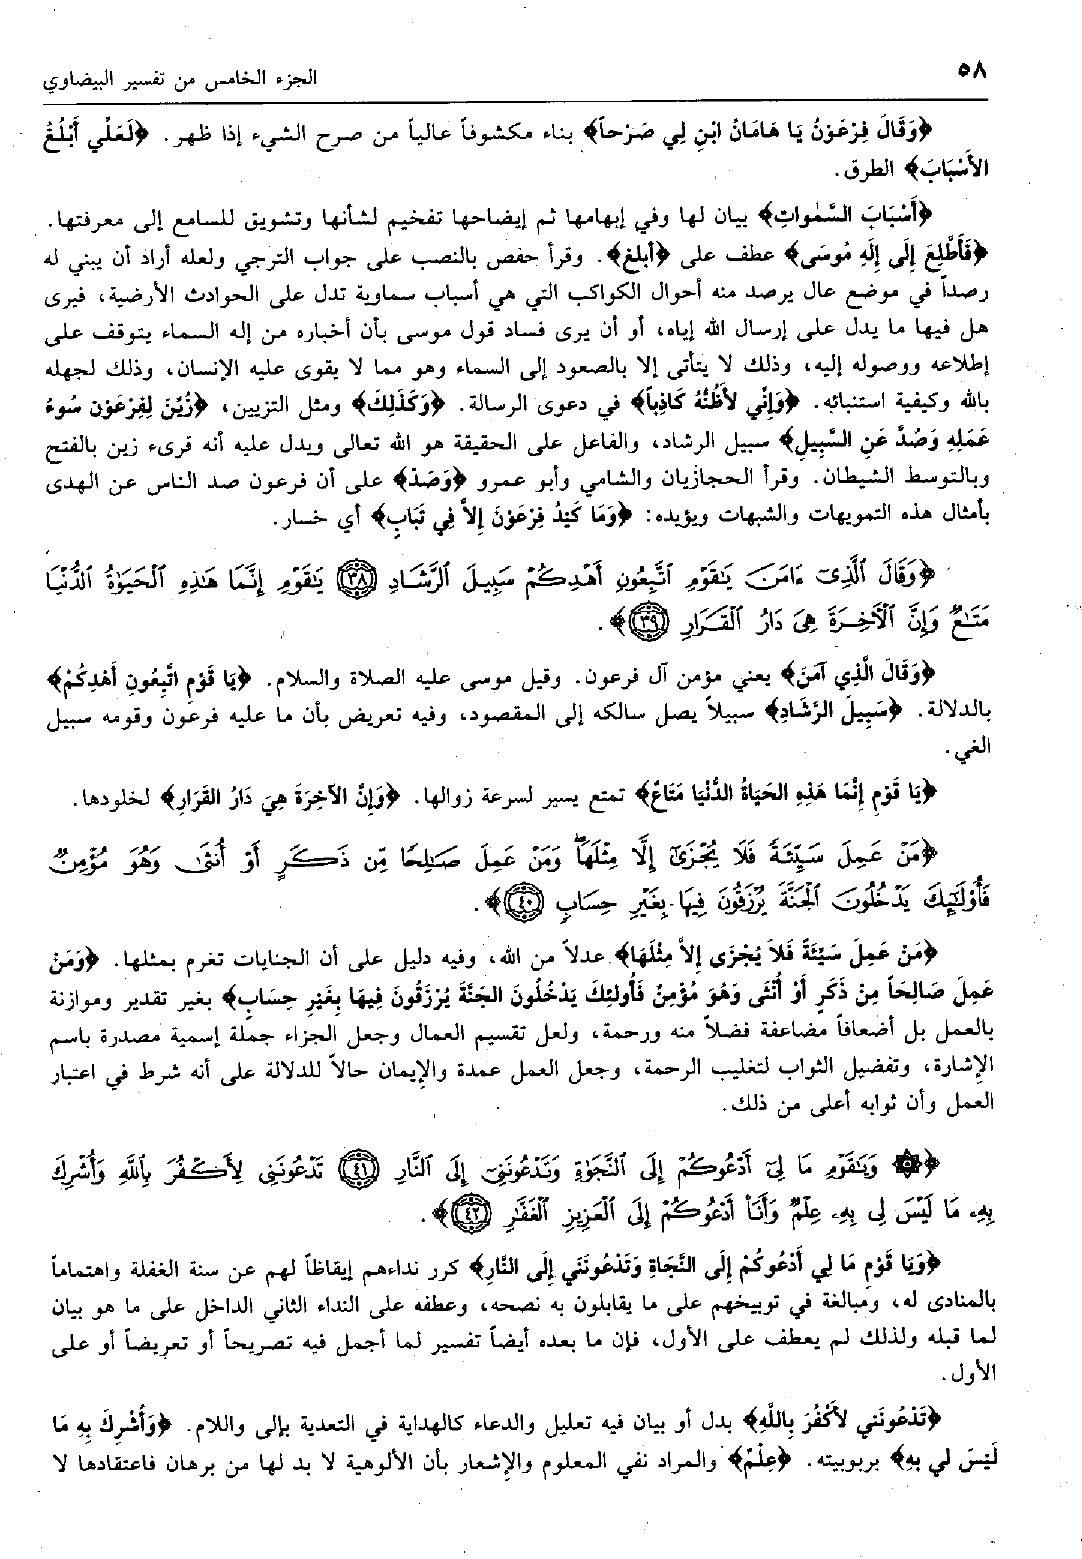 ٥٨
الجزء الخامس من تفسير البيضاوي
﴿وَقَالَ فِرْعَوْنُ يَا هَامَانُ ابْنِ لِي صَرْحاً﴾ بناء مكشوفاً عالياً من صرح الشيء إذا ظهر. ﴿لَعَلِّي أَبْلُغُ
الأَسْبَابَ﴾ الطرق.
﴿أَسْبَابَ السَّمٰوَاتِ﴾ بيان لها وفي إبهامها ثم إيضاحها تفخيم لشأنها وتشويق للسامع إلى معرفتها.
﴿فَأَطَّلِعَ إِلَى إِلَهِ مُوسَى﴾ عطف على ﴿أبلغ﴾. وقرأ حفص بالنصب على جواب الترجي ولعله أراد أن يبني له
رصداً في موضع عال يرصد منه أحوال الكواكب التي هي أسباب سماوية تدل على الحوادث الأرضية، فيرى
هل فيها ما يدل على إرسال الله إياه، أو أن يرى فساد قول موسى بأن أخباره من إله السماء يتوقف على
إطلاعه ووصوله إليه، وذلك لا يتأتى إلا بالصعود إلى السماء وهو مما لا يقوى عليه الإنسان، وذلك لجهله
بالله وكيفية استنبائه. ﴿وَإِنِّي لأَظُنُّهُ كَاذِباً﴾ في دعوى الرسالة. ﴿وَكَذَلِكَ﴾ ومثل التزيين، ﴿زُيِّنَ لِفِرْعَوْنَ سُوءُ
عَمَلِهِ وَصُدَّ عَنِ السَّبِيلِ﴾ سبيل الرشاد، والفاعل على الحقيقة هو الله تعالى ويدل عليه أنه قرىء زين بالفتح
وبالتوسط الشيطان. وقرأ الحجازيان والشامي وأبو عمرو ﴿وَصَدَّ﴾ على أن فرعون صد الناس عن الهدى
بأمثال هذه التمويهات والشبهات ويؤيده: ﴿وَمَا كَيْدُ فِرْعَوْنَ إِلاَّ فِي تَبَابٍ﴾ أي خسار.
﴿وَقَالَ ٱلَّذِىٓ ءَامَنَ يَٰقَوْمِ ٱتَّبِعُونِ أَهْدِكُمْ سَبِيلَ ٱلرَّشَادِ ٣٨ يَٰقَوْمِ إِنَّمَا هَٰذِهِ ٱلْحَيَوٰةُ ٱلدُّنْيَا
مَتَٰعٌ وَإِنَّ ٱلْآخِرَةَ هِىَ دَارُ ٱلْقَرَارِ ٣٩﴾.
﴿وَقَالَ الَّذِي آمَنَ﴾ يعني مؤمن آل فرعون. وقيل موسى عليه الصلاة والسلام. ﴿يَا قَوْمِ اتَّبِعُونِ أَهْدِكُمْ﴾
بالدلالة. ﴿سَبِيلَ الرَّشَادِ﴾ سبيلاً يصل سالكه إلى المقصود، وفيه تعريض بأن ما عليه فرعون وقومه سبيل
الغي.
﴿يَا قَوْمِ إِنَّمَا هَذِهِ الحَيَاةُ الدُّنْيَا مَتَاعٌ﴾ تمتع يسير لسرعة زوالها. ﴿وَإِنَّ الآخِرَةَ هِيَ دَارُ القَرَارِ﴾ لخلودها.
﴿مَنْ عَمِلَ سَيِّئَةً فَلَا يُجْزَىٰٓ إِلَّا مِثْلَهَا ۖ وَمَنْ عَمِلَ صَٰلِحًا مِّن ذَكَرٍ أَوْ أُنثَىٰ وَهُوَ مُؤْمِنٌ
فَأُو۟لَٰٓئِكَ يَدْخُلُونَ ٱلْجَنَّةَ يُرْزَقُونَ فِيهَا بِغَيْرِ حِسَابٍ ٤٠﴾.
﴿مَنْ عَمِلَ سَيِّئَةً فَلاَ يُجْزَى إِلاَّ مِثْلَهَا﴾ عدلاً من الله، وفيه دليل على أن الجنايات تغرم بمثلها. ﴿وَمَنْ
عَمِلَ صَالِحَاً مِنْ ذَكَرٍ أَوْ أُنْثَى وَهُوَ مُؤْمِنٌ فَأُولئِكَ يَدْخُلُونَ الجَنَّةَ يُرْزَقُونَ فِيهَا بِغَيْرِ حِسَابٍ﴾ بغير تقدير وموازنة
بالعمل بل أضعافاً مضاعفة فضلاً منه ورحمة، ولعل تقسيم العمال وجعل الجزاء جملة إسمية مصدرة باسم
الإشارة، وتفضيل الثواب لتغليب الرحمة، وجعل العمل عمدة والإيمان حالاً للدلالة على أنه شرط في اعتبار
العمل وأن ثوابه أعلى من ذلك.
﴿۞ وَيَٰقَوْمِ مَا لِىٓ أَدْعُوكُمْ إِلَى ٱلنَّجَوٰةِ وَتَدْعُونَنِىٓ إِلَى ٱلنَّارِ ٤١ تَدْعُونَنِى لِأَكْفُرَ بِٱللَّهِ وَأُشْرِكَ
بِهِۦ مَا لَيْسَ لِى بِهِۦ عِلْمٌ وَأَنَا۠ أَدْعُوكُمْ إِلَى ٱلْعَزِيزِ ٱلْغَفَّٰرِ ٤٢﴾.
﴿وَيَا قَوْمِ مَا لِي أَدْعُوكُمْ إِلَى النَّجَاةِ وَتَدْعُونَنِي إِلَى النَّارِ﴾ كرر نداءهم إيقاظاً لهم عن سنة الغفلة واهتماماً
بالمنادى له، ومبالغة في توبيخهم على ما يقابلون به نصحه، وعطفه على النداء الثاني الداخل على ما هو بيان
لما قبله ولذلك لم يعطف على الأول، فإن ما بعده أيضاً تفسير لما أجمل فيه تصريحاً أو تعريضاً أو على
الأول.
﴿تَدْعُونَنِي لأَكْفُرَ بِاللَّهِ﴾ بدل أو بيان فيه تعليل والدعاء كالهداية في التعدية بإلى واللام. ﴿وَأُشْرِكَ بِهِ مَا
لَيْسَ لي بِهِ﴾ بربوبيته. ﴿عِلْمٌ﴾ والمراد نفي المعلوم والإشعار بأن الألوهية لا بد لها من برهان فاعتقادها لا